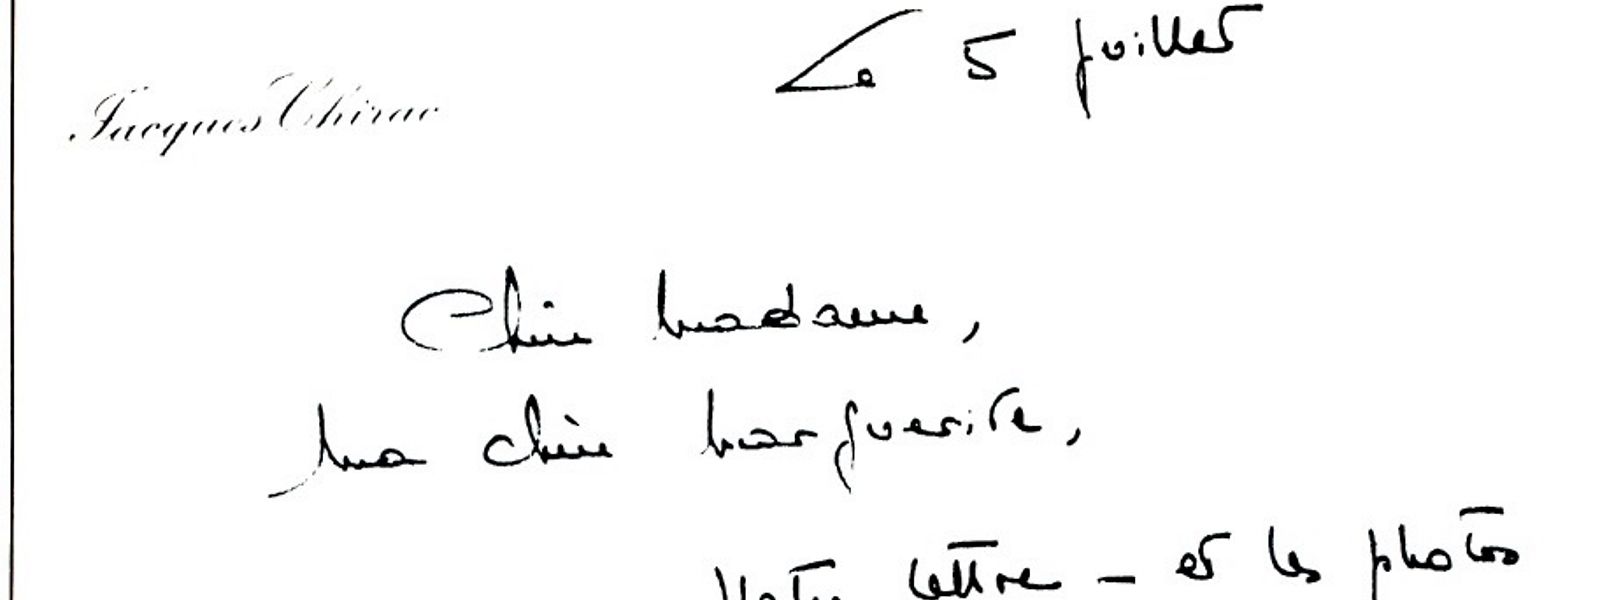 Le 5 juillet
Jacques Chirac
Chère Madame,
Ma chère Marguerite,
Votre lettre – et les photos